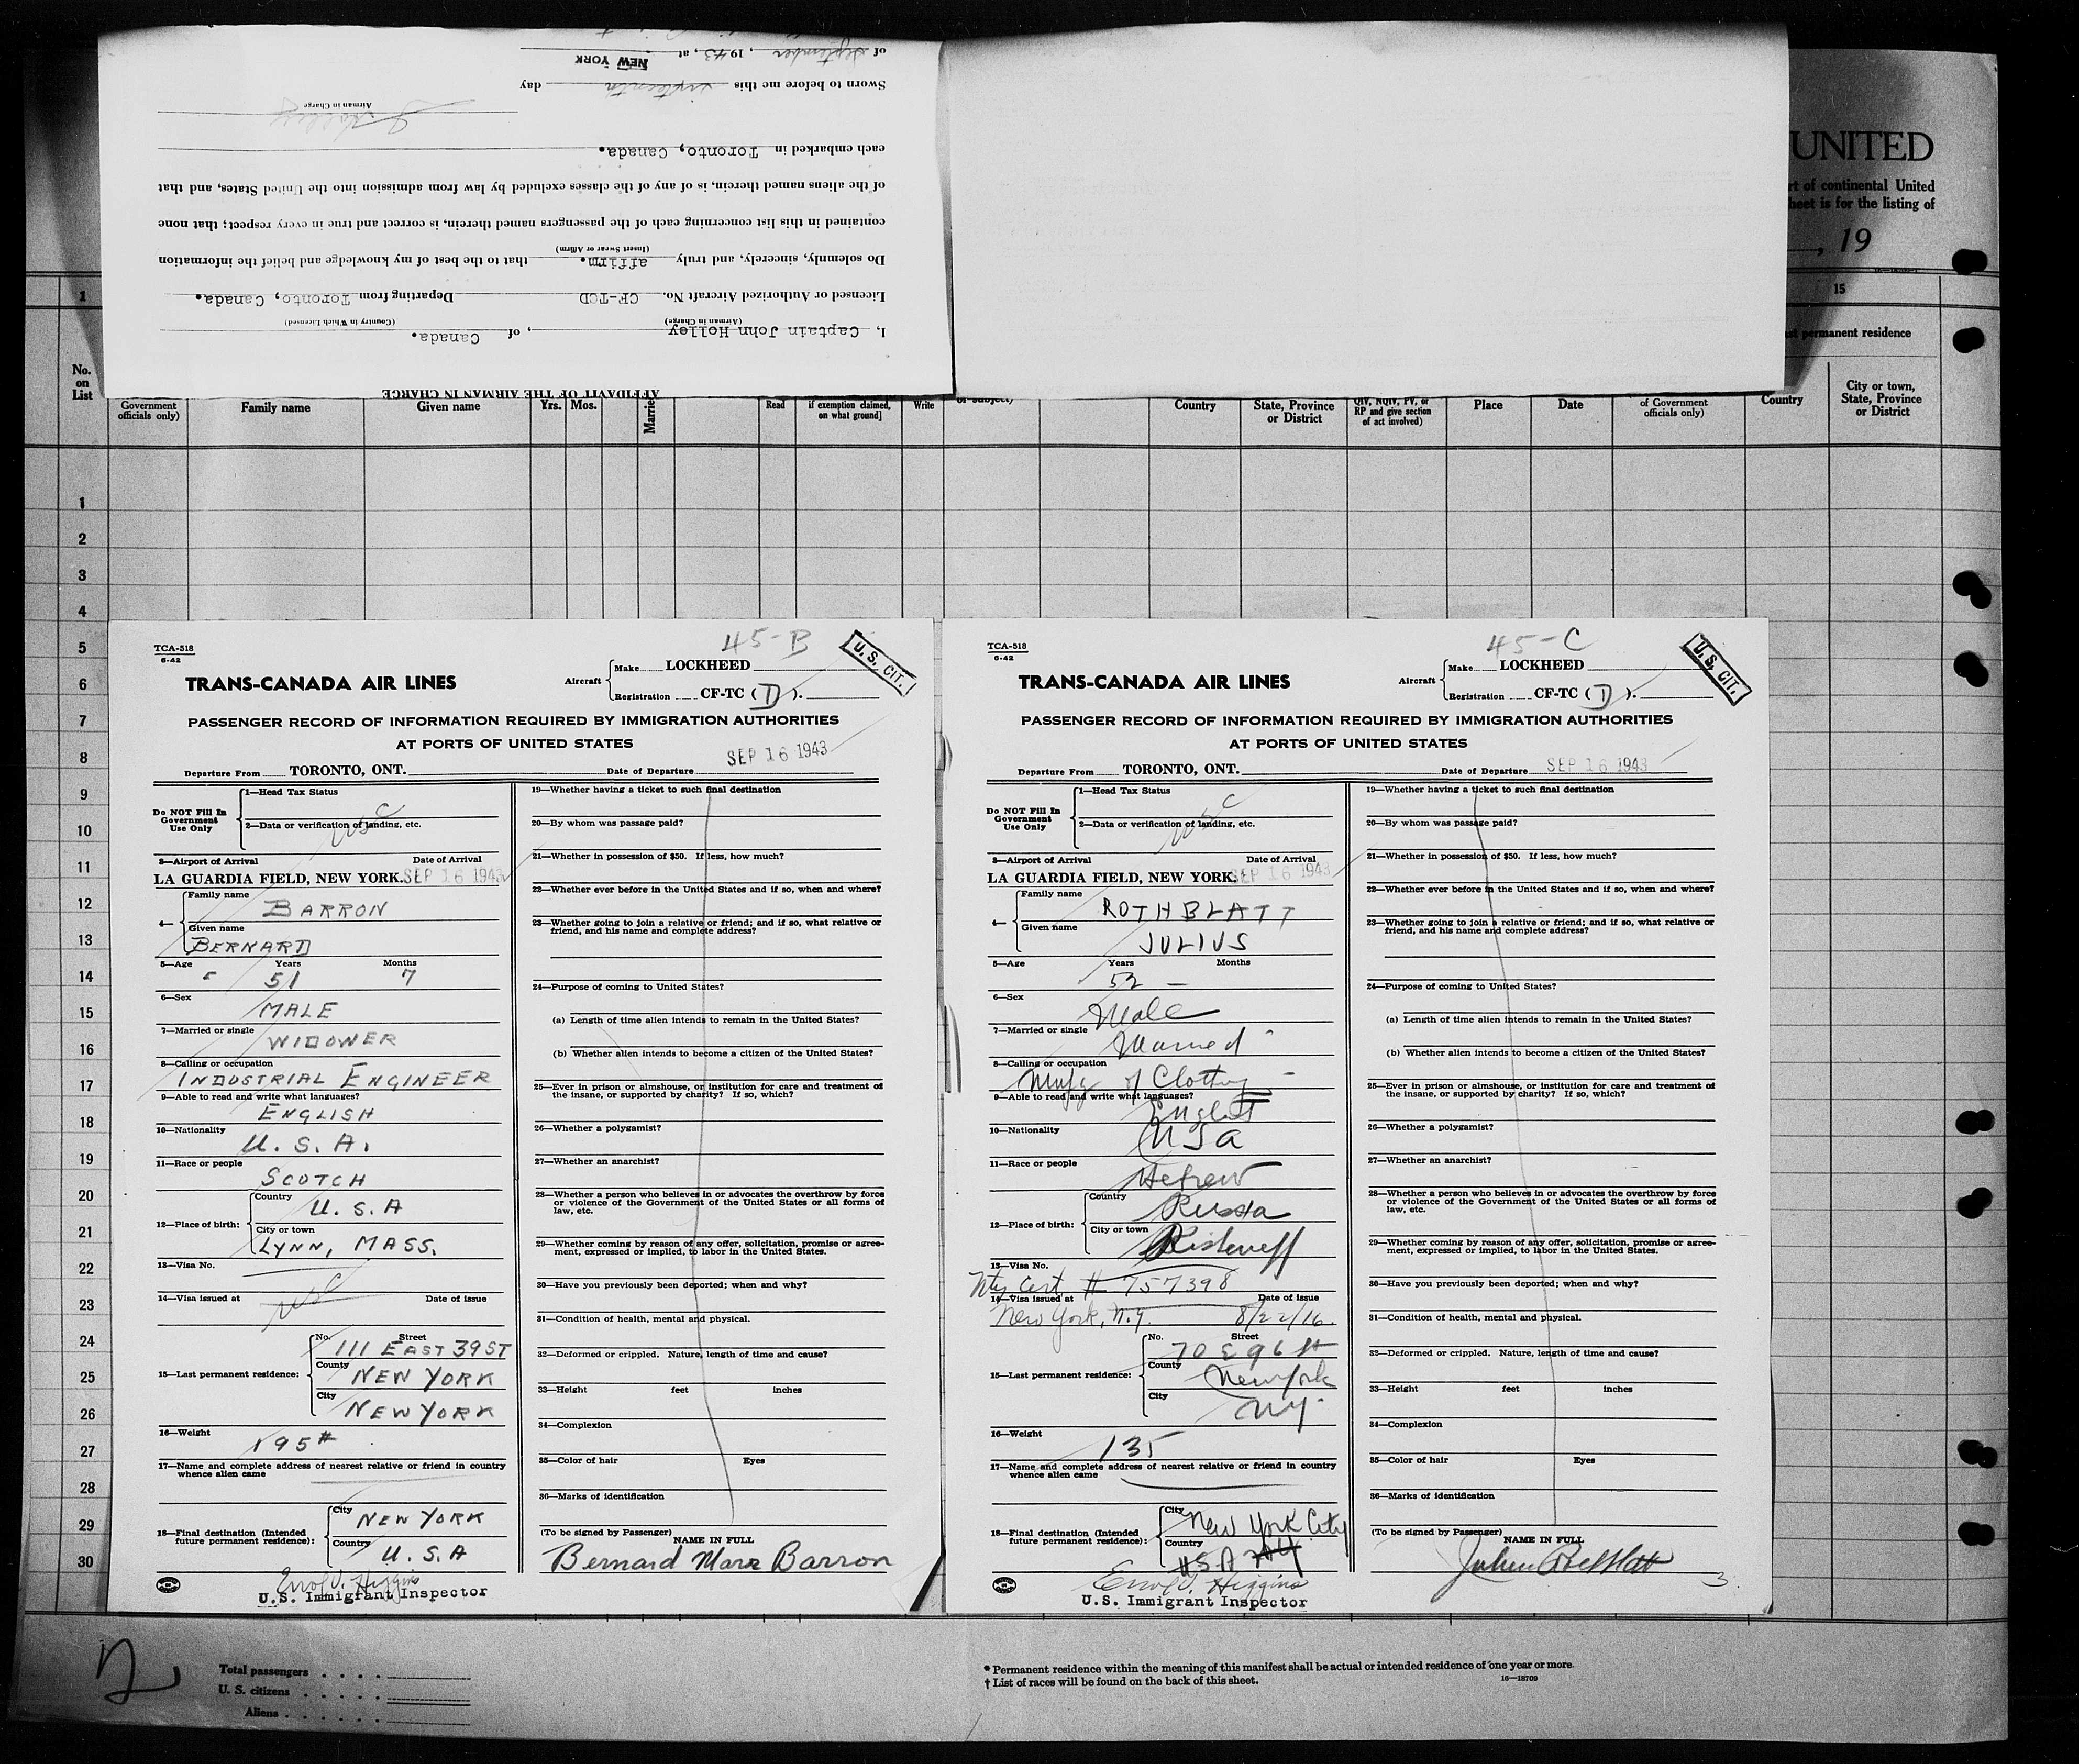 of September, 1943, at
NEW YORK
Sworn to before me this sixteenth day
Airman in Charge
each embarked in Toronto, Canada.
of the aliens named therein, is of any of the classes excluded by law from admission into the United States, and that
contained in this list concerning each of the passengers named therein, is correct and true in every respect; that none
(Insert Swear or Affirm)
Do solemnly, sincerely, and truly affirm. that to the best of my knowledge and belief the information
Licensed or Authorized Aircraft No. CF-TCD Departing from Toronto, Canada.
(Airman in Charge) (Country in Which Licensed)
I, Captain John Holley, of Canada.
AFFIDAVIT OF THE AIRMAN IN CHARGE
UNITED
rt of continental United
heet is for the listing of
, 19
1
15
permanent residence
No. on List
Government officials only)
Family name
Given name
Yrs.
Mos.
Married
Read
if exemption claimed, on what ground]
Write
Country
State, Province or District
QIV, NQIV, PV, or RP and give section of act involved)
Place
Date
of Government officials only)
Country
City or town, State, Province or District
1
2
3
4
5
6
7
8
9
10
11
12
13
14
15
16
17
18
19
20
21
22
23
24
25
26
27
28
29
30
TCA-518
6-42
45-B
U.S. CIT.
TRANS-CANADA AIR LINES
Aircraft
Make LOCKHEED
Registration CF-TC (D).
PASSENGER RECORD OF INFORMATION REQUIRED BY IMMIGRATION AUTHORITIES
AT PORTS OF UNITED STATES
Departure From TORONTO, ONT. Date of Departure SEP 16 1943
Do NOT Fill In Government Use Only
1—Head Tax Status
USC
2—Data or verification of landing, etc.
3—Airport of Arrival Date of Arrival
LA GUARDIA FIELD, NEW YORK. SEP 16 1943
4— Family name
BARRON
Given name
BERNARD
5—Age Years Months
51 7
6—Sex
MALE
7—Married or single
WIDOWER
8—Calling or occupation
INDUSTRIAL ENGINEER
9—Able to read and write what languages?
ENGLISH
10—Nationality
U.S.A.
11—Race or people
SCOTCH
12—Place of birth:
Country
U.S.A
City or town
LYNN, MASS.
13—Visa No.
USC
14—Visa issued at Date of issue
15—Last permanent residence:
No. Street
111 EAST 39 ST
County
NEW YORK
City
NEW YORK
16—Weight
195#
17—Name and complete address of nearest relative or friend in country whence alien came
18—Final destination (Intended future permanent residence):
City
NEW YORK
Country
U.S.A
Errol V. Higgins
U.S. Immigrant Inspector
19—Whether having a ticket to such final destination
20—By whom was passage paid?
21—Whether in possession of $50. If less, how much?
22—Whether ever before in the United States and if so, when and where?
23—Whether going to join a relative or friend; and if so, what relative or friend, and his name and complete address?
24—Purpose of coming to United States?
(a) Length of time alien intends to remain in the United States?
(b) Whether alien intends to become a citizen of the United States?
25—Ever in prison or almshouse, or institution for care and treatment of the insane, or supported by charity? If so, which?
26—Whether a polygamist?
27—Whether an anarchist?
28—Whether a person who believes in or advocates the overthrow by force or violence of the Government of the United States or all forms of law, etc.
29—Whether coming by reason of any offer, solicitation, promise or agreement, expressed or implied, to labor in the United States.
30—Have you previously been deported; when and why?
31—Condition of health, mental and physical.
32—Deformed or crippled. Nature, length of time and cause?
33—Height feet inches
34—Complexion
35—Color of hair Eyes
36—Marks of identification
(To be signed by Passenger)
NAME IN FULL
Bernard Barron
TCA-518
6-42
45-C
U.S. CIT.
TRANS-CANADA AIR LINES
Aircraft
Make LOCKHEED
Registration CF-TC (D).
PASSENGER RECORD OF INFORMATION REQUIRED BY IMMIGRATION AUTHORITIES
AT PORTS OF UNITED STATES
Departure From TORONTO, ONT. Date of Departure SEP 16 1943
Do NOT Fill In Government Use Only
1—Head Tax Status
USC
2—Data or verification of landing, etc.
3—Airport of Arrival Date of Arrival
LA GUARDIA FIELD, NEW YORK. SEP 16 1943
4— Family name
ROTHBLATT
Given name
JULIUS
5—Age Years Months
52 —
6—Sex
Male
7—Married or single
Married
8—Calling or occupation
Mnfg of Clothing
9—Able to read and write what languages?
English
10—Nationality
USA
11—Race or people
Hebrew
12—Place of birth:
Country
Russia
City or town
Kisheneff
13—Visa No.
Nty Cert. # 757398
14—Visa issued at Date of issue
New York, N.Y. 8/22/16.
15—Last permanent residence:
No. Street
70 E 96 St
County
New York
City
NY.
16—Weight
135
17—Name and complete address of nearest relative or friend in country whence alien came
18—Final destination (Intended future permanent residence):
City
New York City
Country
USA
Errol V. Higgins
U.S. Immigrant Inspector
19—Whether having a ticket to such final destination
20—By whom was passage paid?
21—Whether in possession of $50. If less, how much?
22—Whether ever before in the United States and if so, when and where?
23—Whether going to join a relative or friend; and if so, what relative or friend, and his name and complete address?
24—Purpose of coming to United States?
(a) Length of time alien intends to remain in the United States?
(b) Whether alien intends to become a citizen of the United States?
25—Ever in prison or almshouse, or institution for care and treatment of the insane, or supported by charity? If so, which?
26—Whether a polygamist?
27—Whether an anarchist?
28—Whether a person who believes in or advocates the overthrow by force or violence of the Government of the United States or all forms of law, etc.
29—Whether coming by reason of any offer, solicitation, promise or agreement, expressed or implied, to labor in the United States.
30—Have you previously been deported; when and why?
31—Condition of health, mental and physical.
32—Deformed or crippled. Nature, length of time and cause?
33—Height feet inches
34—Complexion
35—Color of hair Eyes
36—Marks of identification
(To be signed by Passenger)
NAME IN FULL
Julius Rothblatt
3
2
Total passengers . . . .
U. S. citizens . . . . .
Aliens . . . . . .
* Permanent residence within the meaning of this manifest shall be actual or intended residence of one year or more.
† List of races will be found on the back of this sheet.
16—18709